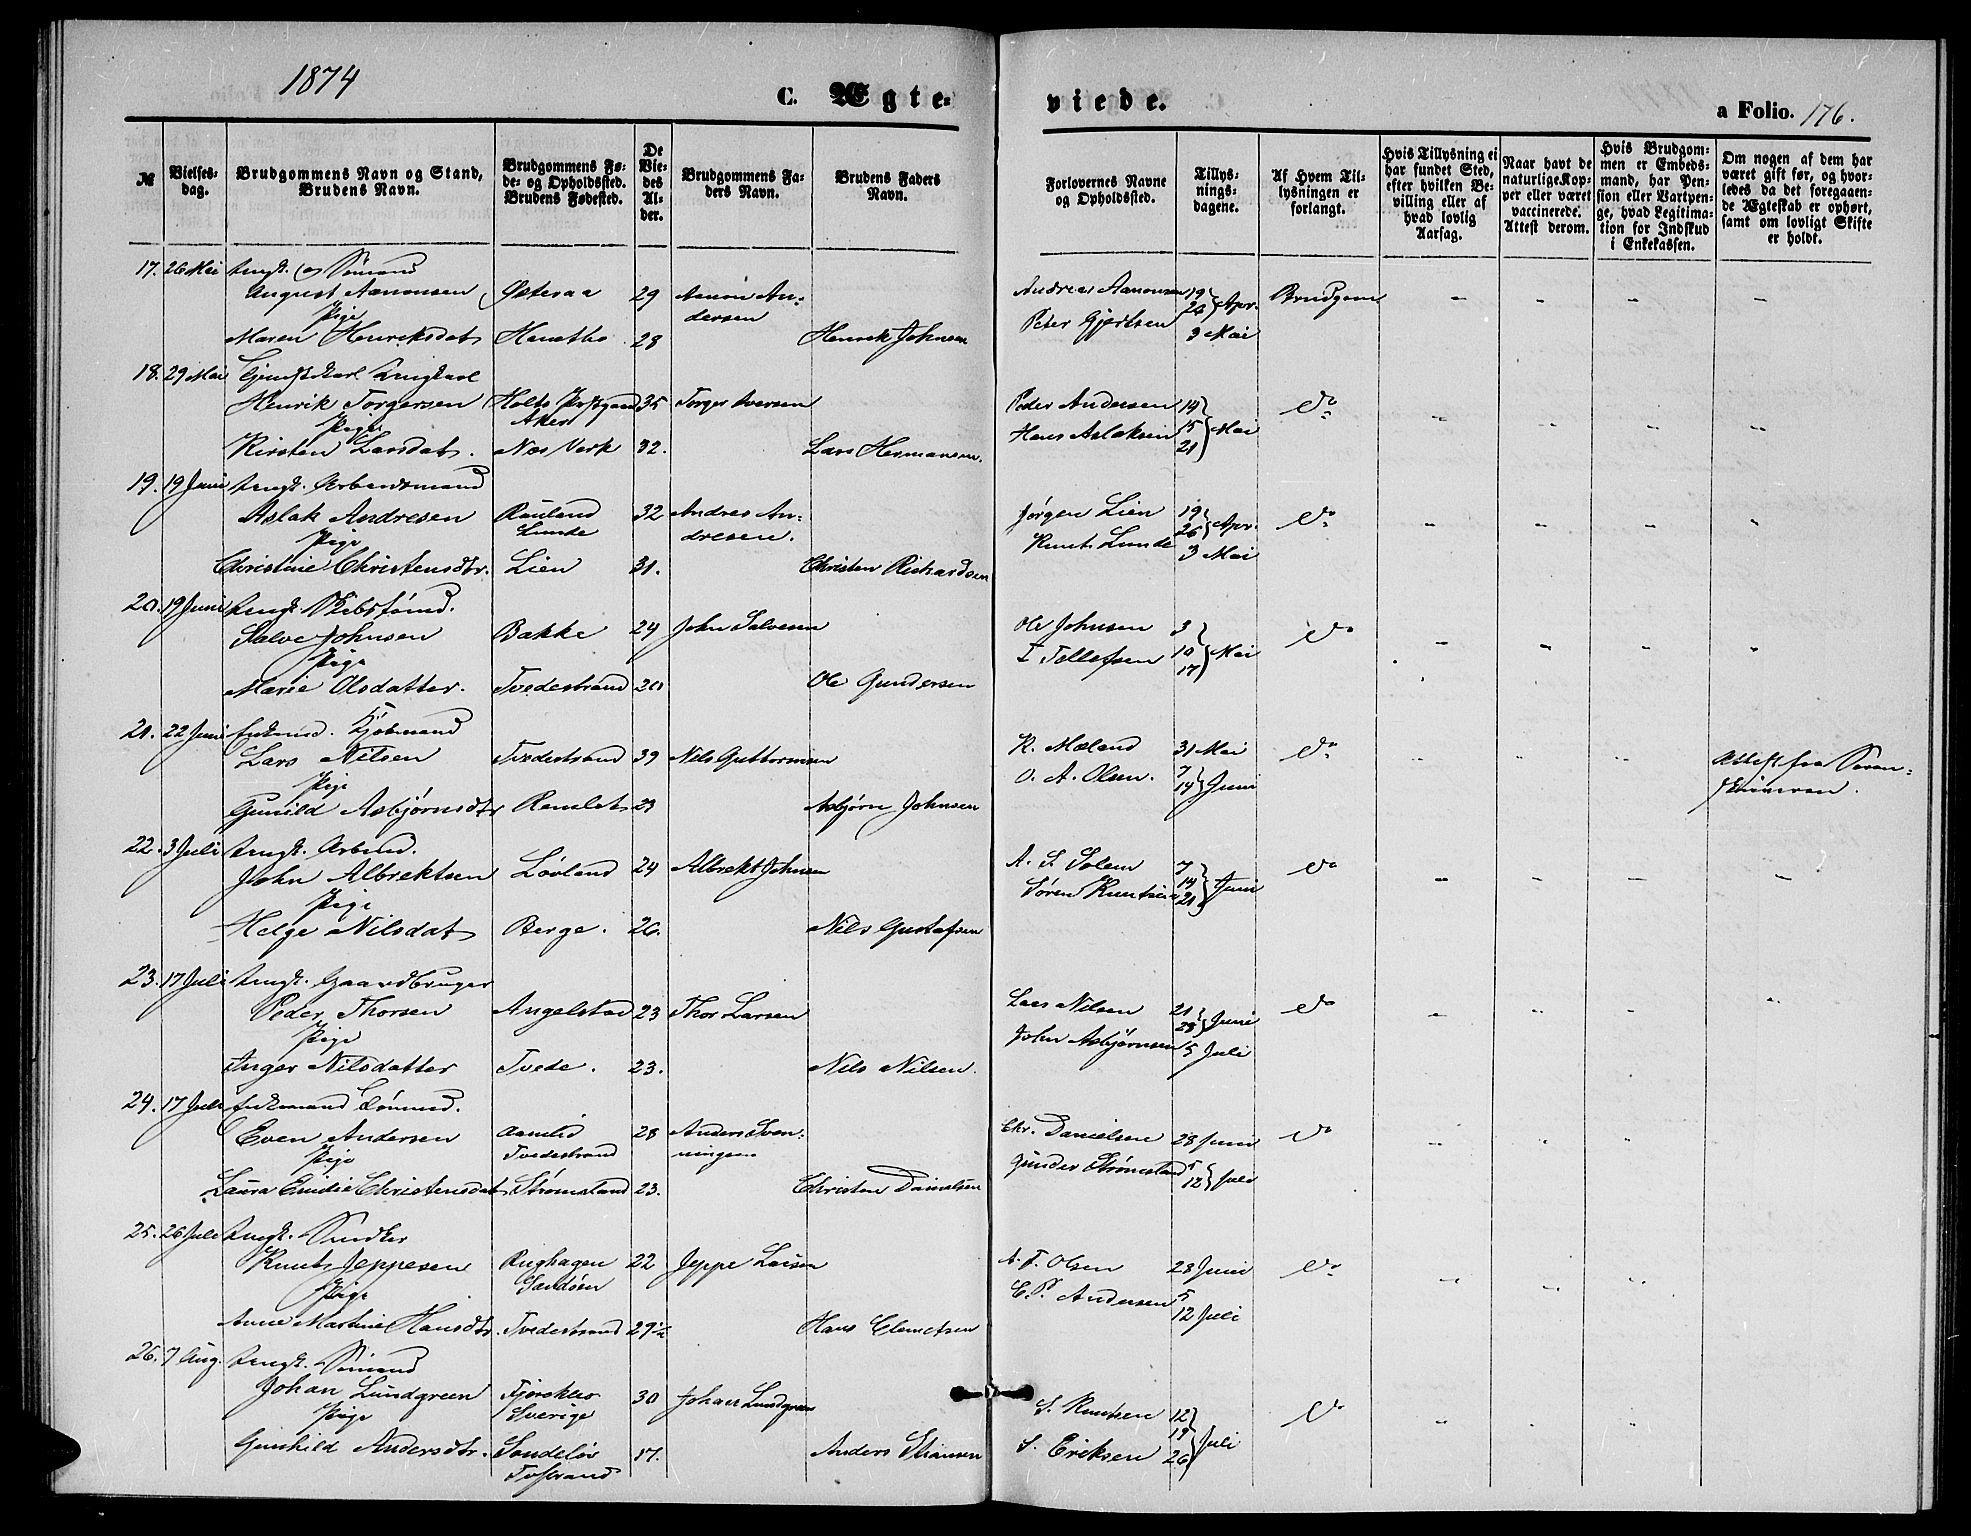 1874
C. Ægte=
viede.
a Folio. 176.
№
Vielses-
dag.
Brudgommens Navn og Stand,
Brudens Navn.
Brudgommens Fø-
de- og Opholdssted.
Brudens Fødested.
De
Vie-
des
Al-
der.
Brudgommens Fa-
ders Navn.
Brudens Faders
Navn.
Forlovernes Navne
og Opholdssted.
Tillys-
nings-
dagene.
Af Hvem Til-
lysningen er
forlangt.
Hvis Tillysning ei
har fundet Sted,
efter hvilken Be-
villing eller af
hvad lovlig
Aarsag.
Naar havt de
naturlige Kop-
per eller været
vaccinerede.
Attest derom.
Hvis Brudgom-
men er Embeds-
mand, har Pen-
sion eller Vartpen-
ge, hvad Legitima-
tion for Indskud
i Enkekassen.
Om nogen af dem har
været gift før, og hvor-
ledes da det foregaaen-
de Ægteskab er ophørt,
samt om lovligt Skifte
er holdt.
17. 26 Mai Ungk. og Sømand
August Aanonsen Østeraa 29 Aanon An-
dersen Andreas Aanonsen 19 26 Apr. Brudgom
Pige
Maren Henriksdat 28 Henrik Johnsen Peter Gjertsen 3 Mai
18. 29 Mai Ungkarl
Henrik Torgersen Holts Præstgaard 35 Torger Iversen Peder Andersen 14 Mai do
Pige Aker
Kirsten Larsdat. Næs Verk 32. Lars Hermansen. Hans Aslaksen 15 21
19. 19 Juni Ungk. Arbeidsmand
Aslak Andresen Rauland 32 Andres An- Jørgen Lien 19 26 Apr. do
Pige Lunde dresen. Knut Lunde 3 Mai
Christine Christensdtr. Lien 31. Christen Richardsen
20. 19 Juni Ungk. Skibstømd.
Salve Johnsen Bakke 24 John Salvesen Ole Johnsen 3 Mai do
Pige T Tellefsen 10 17
Marie Olsdatter. Tvedestrand 20 Ole Gundersen
21. 22 Juni Enkemd. Kjøbmand
Lars Nilsen Tvedestrand 39 Nils Guttormsen K. Mæland 31 Mai do Attest fra Soren-
Pige O. A. Olsen. 7 14 Juni skriveren.
Gunild Asbjørnsdtr Ramlet 23 Asbjørn Johnsen
22. 3 Juli Ungk. Arbmd.
John Albrektsen Løvland 24 Albrekt Johnsen A. S Solem 7 14 21 Juni do
Pige Søren Knutsen
Helge Nilsdat Berge. 26. Nils Gustafsen
23. 17 Juli Ungk. Gaardbruger
Peder Thorsen Angelstad 23 Thor Larsen Lars Nilsen 21 28 Juni do
Pige John Asbjørnsen 5 Juli
Anger Nilsdatter Tvede. 23. Nils Nilsen.
24. 17 Juli Enkemand Sømmd.
Even Andersen Aamlid 28 Anders Sven- Chr. Danielsen 28 Juni do
Pige Tvedestrand ningsen Gunder Strømstand 5 12 Juli
Laura Emilie Christensdat Strømstand 23. Christen Danielsen
25. 26 Juli Ungk. Snedker
Knut Jeppesen Rughagen 22 Jeppe Larsen A. T. Olsen 28 Juni do
Pige Sandøen E. P. Andersen 5 12 Juli
Anne Martine Hansdtr. Tvedestrand 29½ Hans Clemetsen
26. 7 Aug. Ungk. Sømand
Johan Lundgreen 30 Johan Lundgreen S. Knutsen 12 19 26 Juli do
Pige Sverige
Gunhild Andersdtr. Sandeløv 17. Anders S. Eriksen